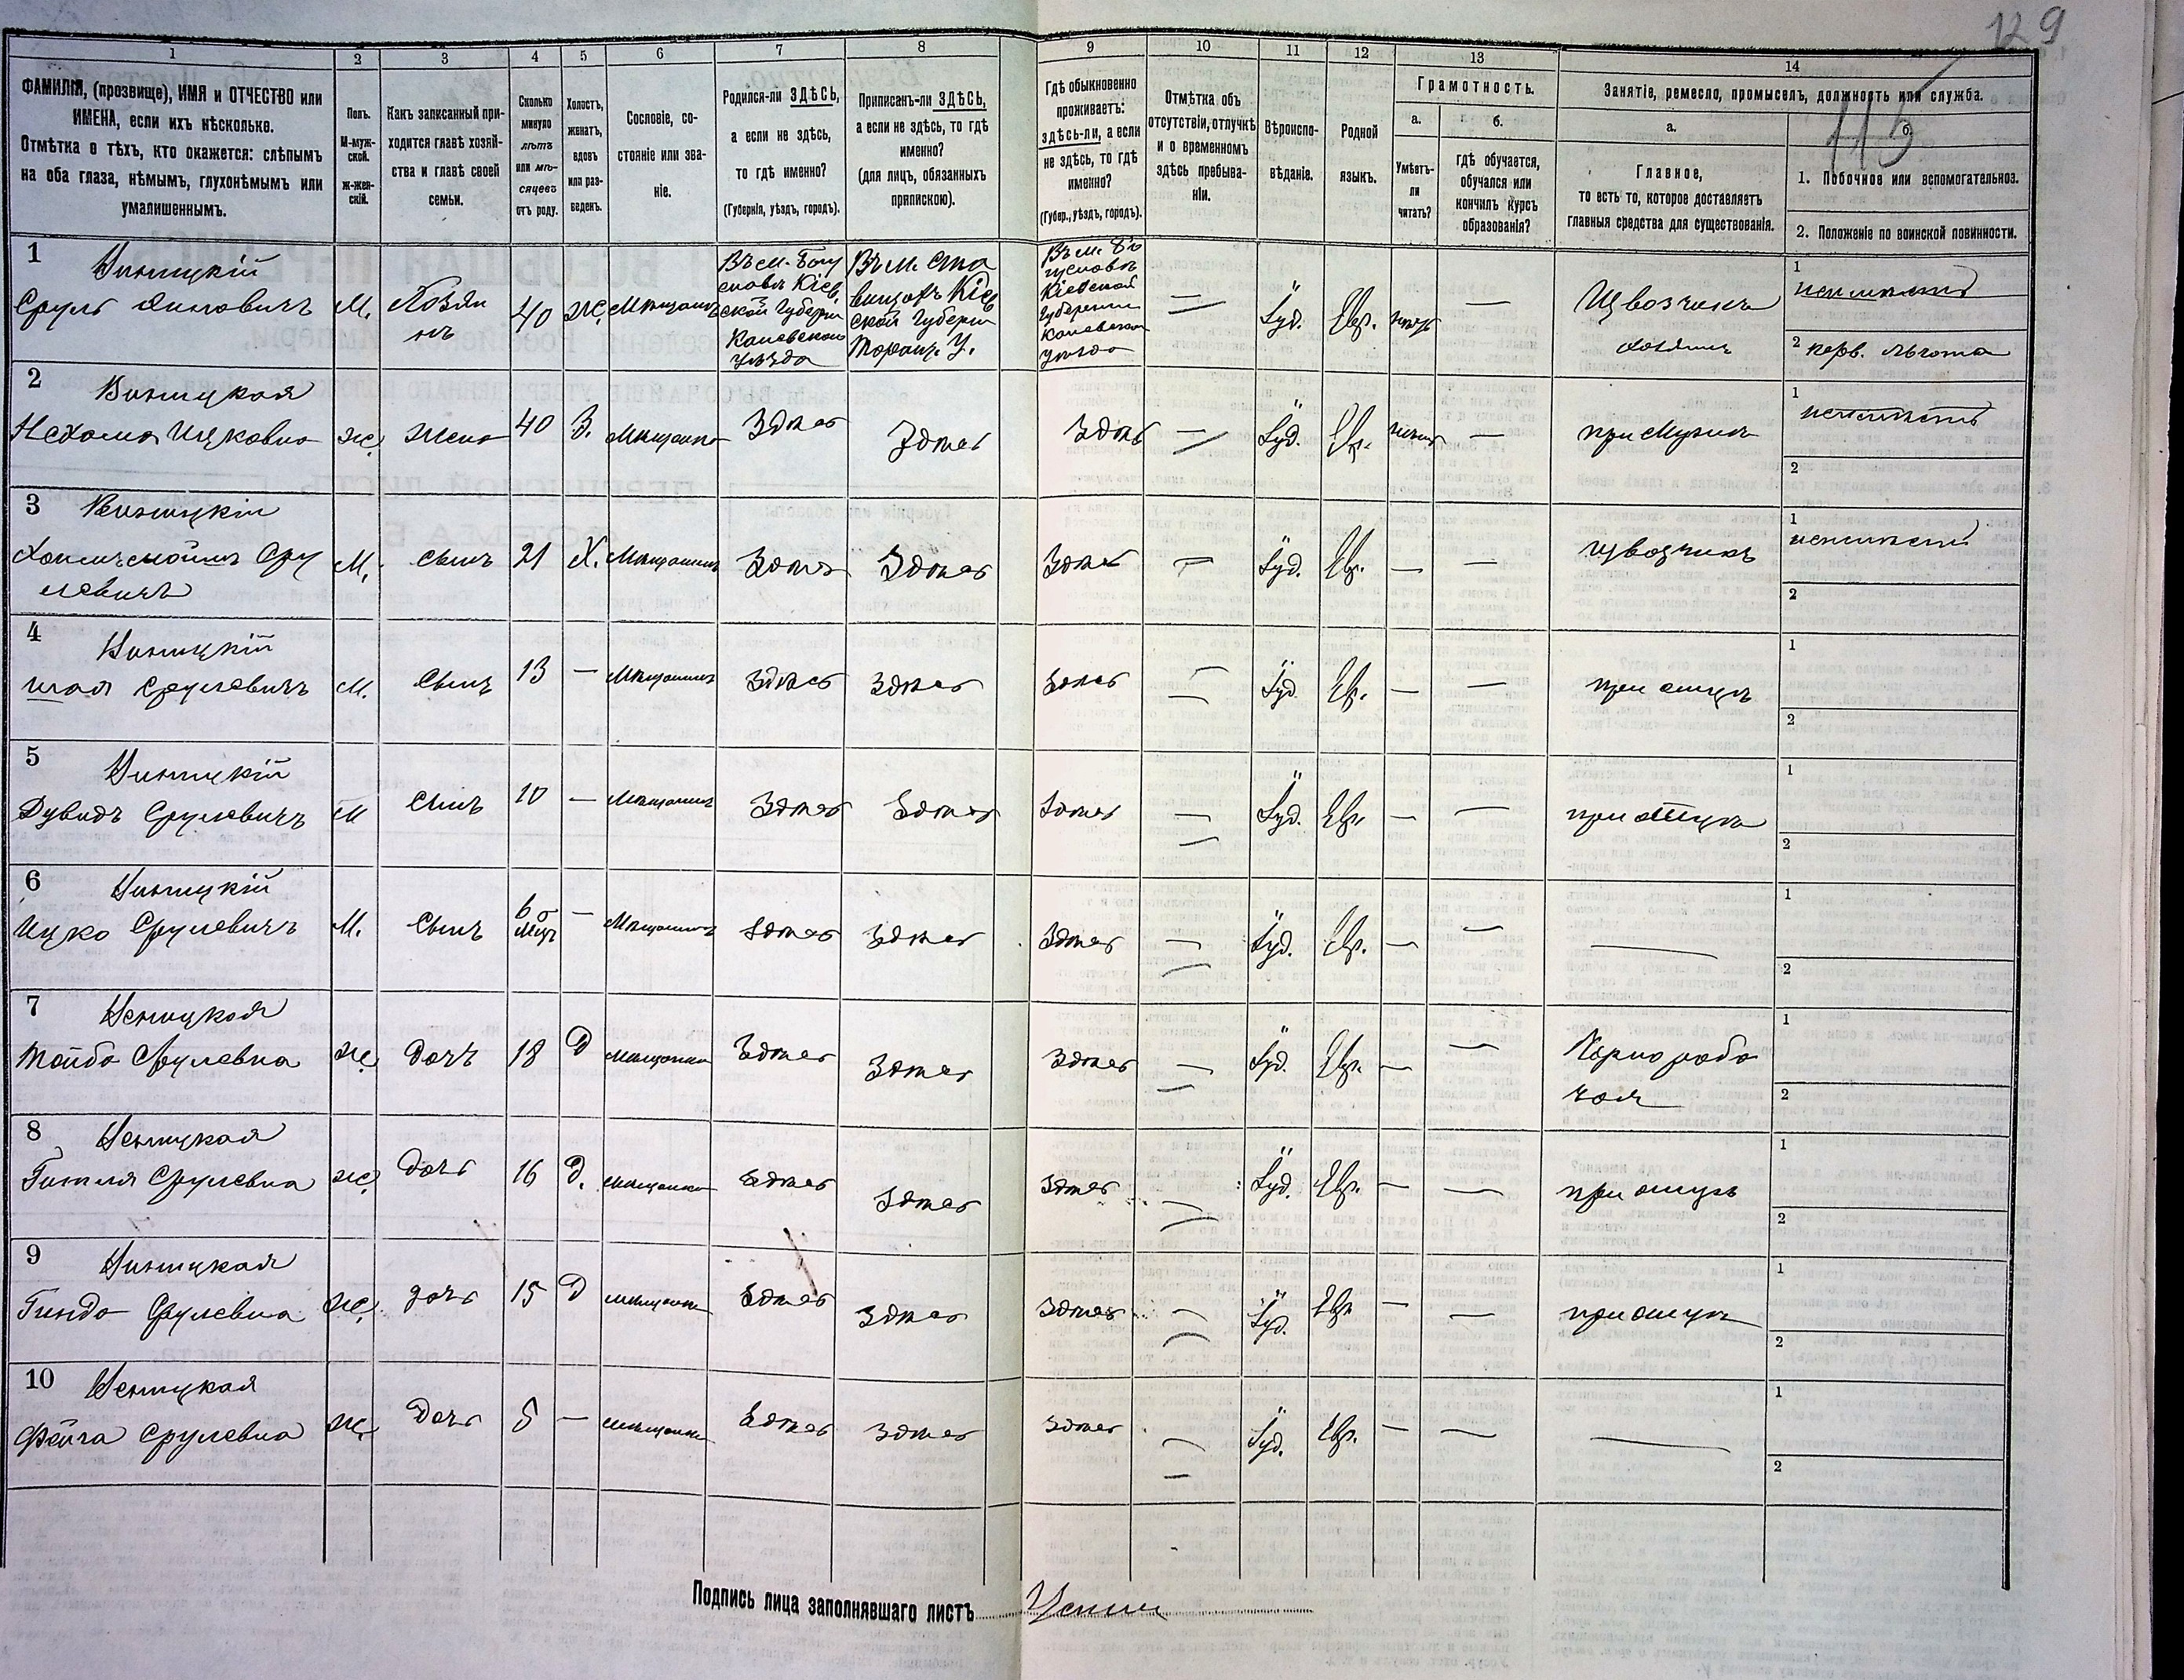 129
115
1 2 3 4 5 6 7 8 9 10 11 12 13 14
ФАМИЛІЯ, (прозвище), ИМЯ и ОТЧЕСТВО или
ИМЕНА, если ихъ нѣсколько.
Отмѣтка о тѣхъ, кто окажется: слѣпымъ
на оба глаза, нѣмымъ, глухонѣмымъ или
умалишеннымъ.
Полъ.
М-муж-
ской.
ж-жен-
скій.
Какъ записанный при-
ходится главѣ хозяй-
ства и главѣ своей
семьи.
Сколько
минуло
лѣтъ
или мѣ-
сяцевъ
отъ роду.
Холостъ,
женатъ,
вдовъ
или раз-
веденъ.
Сословіе, со-
стояніе или зва-
ніе.
Родился-ли ЗДѢСЬ,
а если не здѣсь,
то гдѣ именно?
(Губернія, уѣздъ, городъ).
Приписанъ-ли ЗДѢСЬ,
а если не здѣсь, то гдѣ
именно?
(для лицъ, обязанныхъ
припискою).
Гдѣ обыкновенно
проживаетъ:
здѣсь-ли, а если
не здѣсь, то гдѣ
именно?
(Губер., уѣздъ, городъ).
Отмѣтка объ
отсутствіи, отлучкѣ
и о временномъ
здѣсь пребыва-
ніи.
Вѣроиспо-
вѣданіе.
Родной
языкъ.
Грамотность.
а.
Умѣетъ-
ли
читать?
б.
гдѣ обучается,
обучался или
кончилъ курсъ
образованія?
Занятіе, ремесло, промыселъ, должность или служба.
а.
Главное,
то есть то, которое доставляетъ
главныя средства для существованія.
б.
1. Побочное или вспомогательное.
2. Положеніе по воинской повинности.
1
Сруль
М.
Хозяи
нъ
40
Ж.
Въ м. Богу
славѣ Кіев
ской Губерн
Каневского
Уѣзда
Въ м. Ста
вищахъ Кіев
ской Губерн
Таращ. У.
Въ м. Бо
гуславѣ
Кіевской
Губерніи
Каневского
Уѣзда
Іуд. Евр.
Извозчикъ
хозяинъ
1
2 перв. льгота
2 Виницкая
Нехама Ицковна Ж. жена 40 З. Мѣщанка Здѣсь Здѣсь Здѣсь Іуд. Евр. при мужѣ
1
2
3 Виницкій
Сру
левичъ
М. сынъ 21 Х. Мѣщанинъ Здѣсь Здѣсь Здѣсь Іуд. Евр. извозчикъ
1
2
4 Виницкій
Шая Срулевичъ М. Сынъ 13 — Мѣщанинъ Здѣсь Здѣсь Здѣсь Іуд. Евр. — — при отцѣ
1
2
5 Виницкій
Дувидъ Срулевичъ М Сынъ 10 — Мѣщанинъ Здѣсь Здѣсь Здѣсь Іуд. Евр. — — при отцѣ
1
2
6 Виницкій
Ицко Срулевичъ М. Сынъ 6 Мѣщанинъ Здѣсь Здѣсь Здѣсь Іуд. Евр. — —
1
2
7 Виницкая
Тайба Срулевна Ж. дочь 18 Д мѣщанка Здѣсь Здѣсь Здѣсь Іуд. Евр. — —
1
2
8 Виницкая
Гитля Срулевна Ж. дочь 16 Д. мѣщанка Здѣсь Здѣсь Здѣсь Іуд. Евр. — — при отцѣ
1
2
9 Виницкая
Гинда Срулевна Ж. дочь 15 Д мѣщанка Здѣсь Здѣсь Здѣсь Іуд. Евр. — — при отцѣ
1
2
10 Виницкая
Фейга Срулевна Ж. дочь 5 — мѣщанка Здѣсь Здѣсь Здѣсь Іуд. Евр. — —
1
2
Подпись лица заполнявшаго листъ